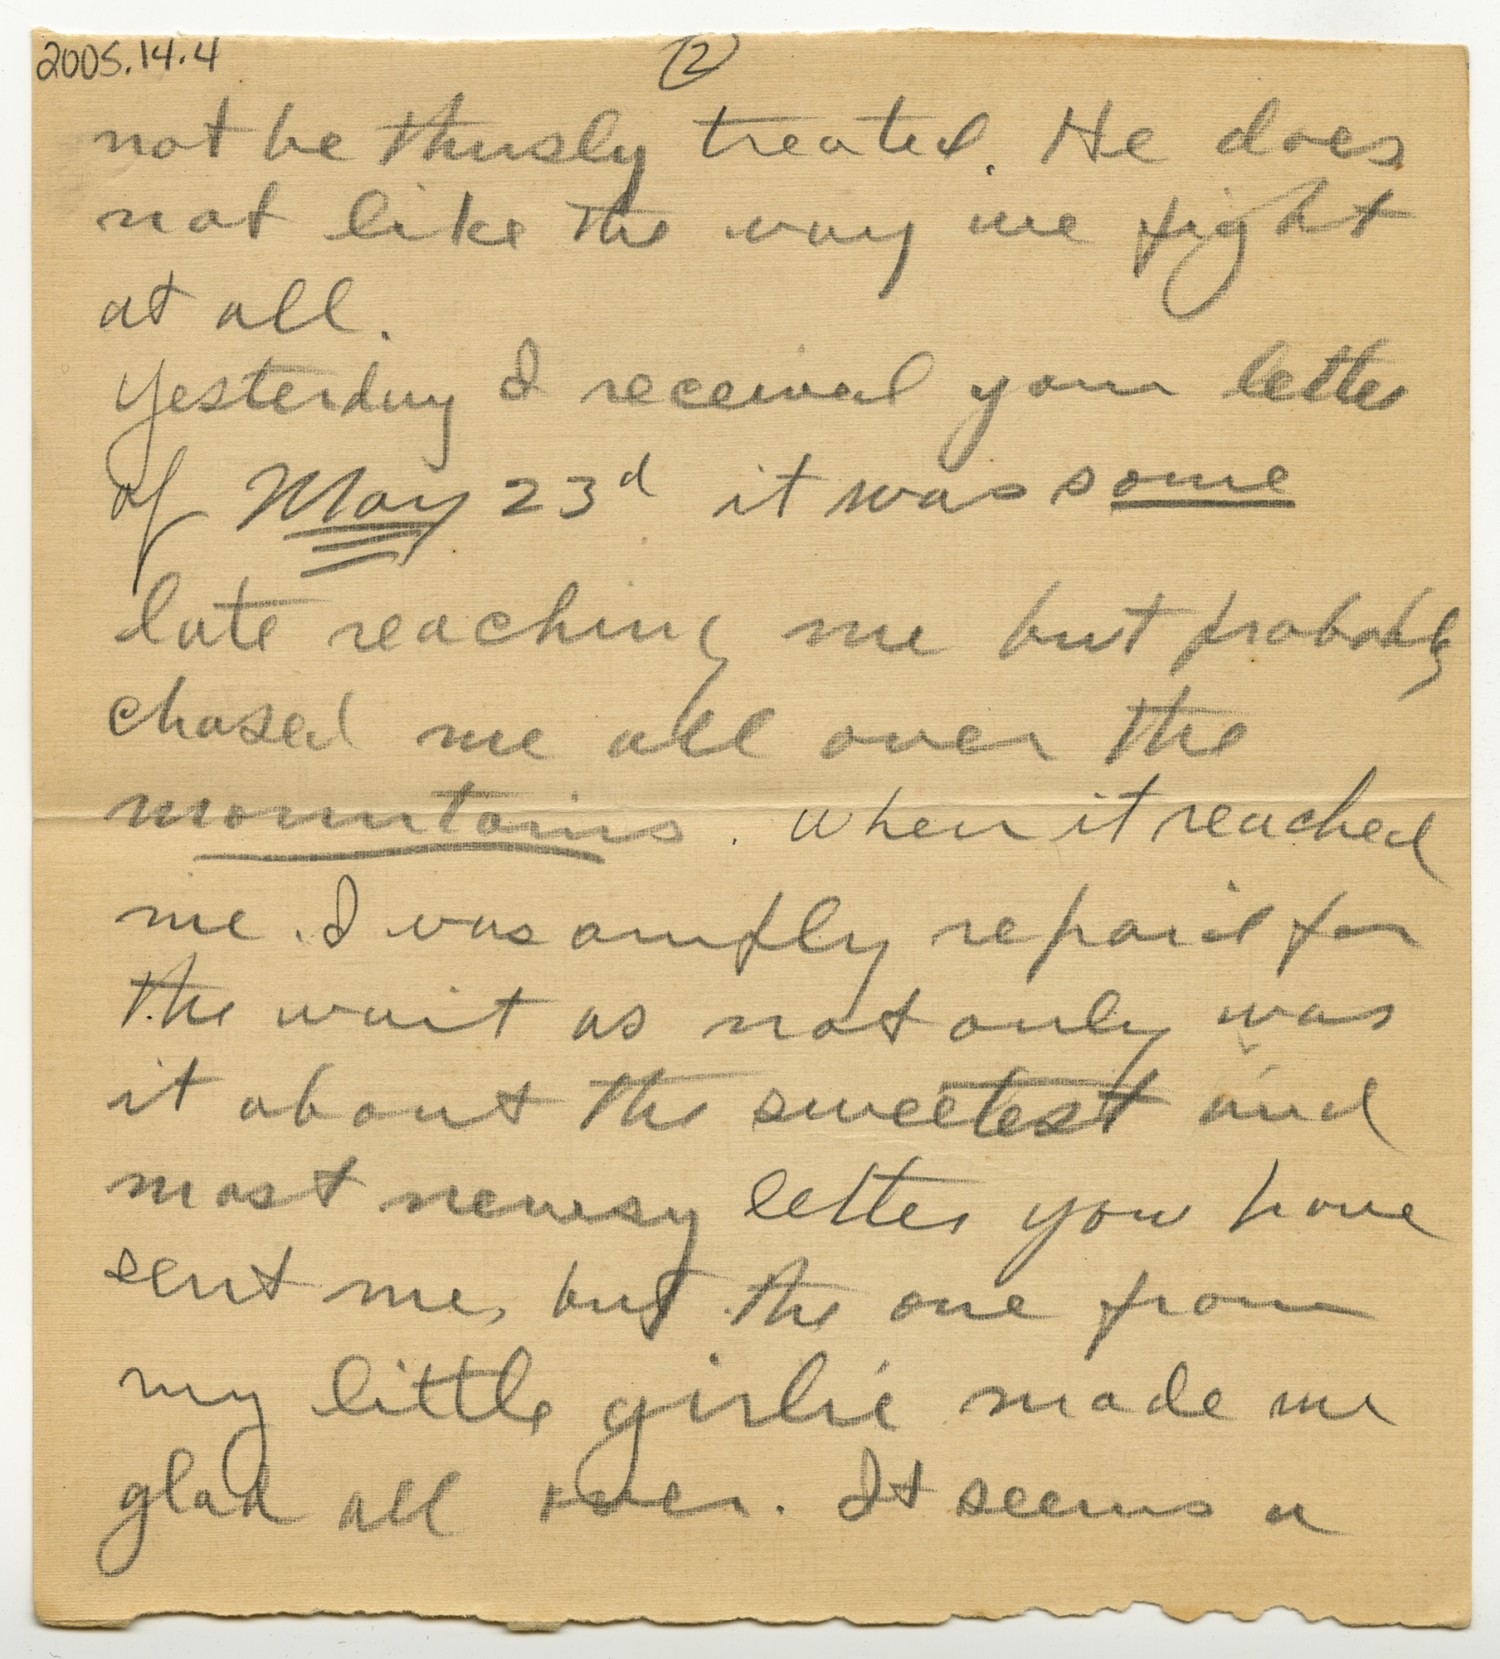 2005.14.4
2
not be thusly treated. He does
not like the way we fight
at all.
Yesterday I received your letter
of May 23d it was some
late reaching me but probably
chased me all over the
mountains. when it reached
me. I was amply repaid for
the wait as not only was
it about the sweetest and
most newsy letter you have
sent me, but the one from
my little girlie made me
glad all over. It seems a